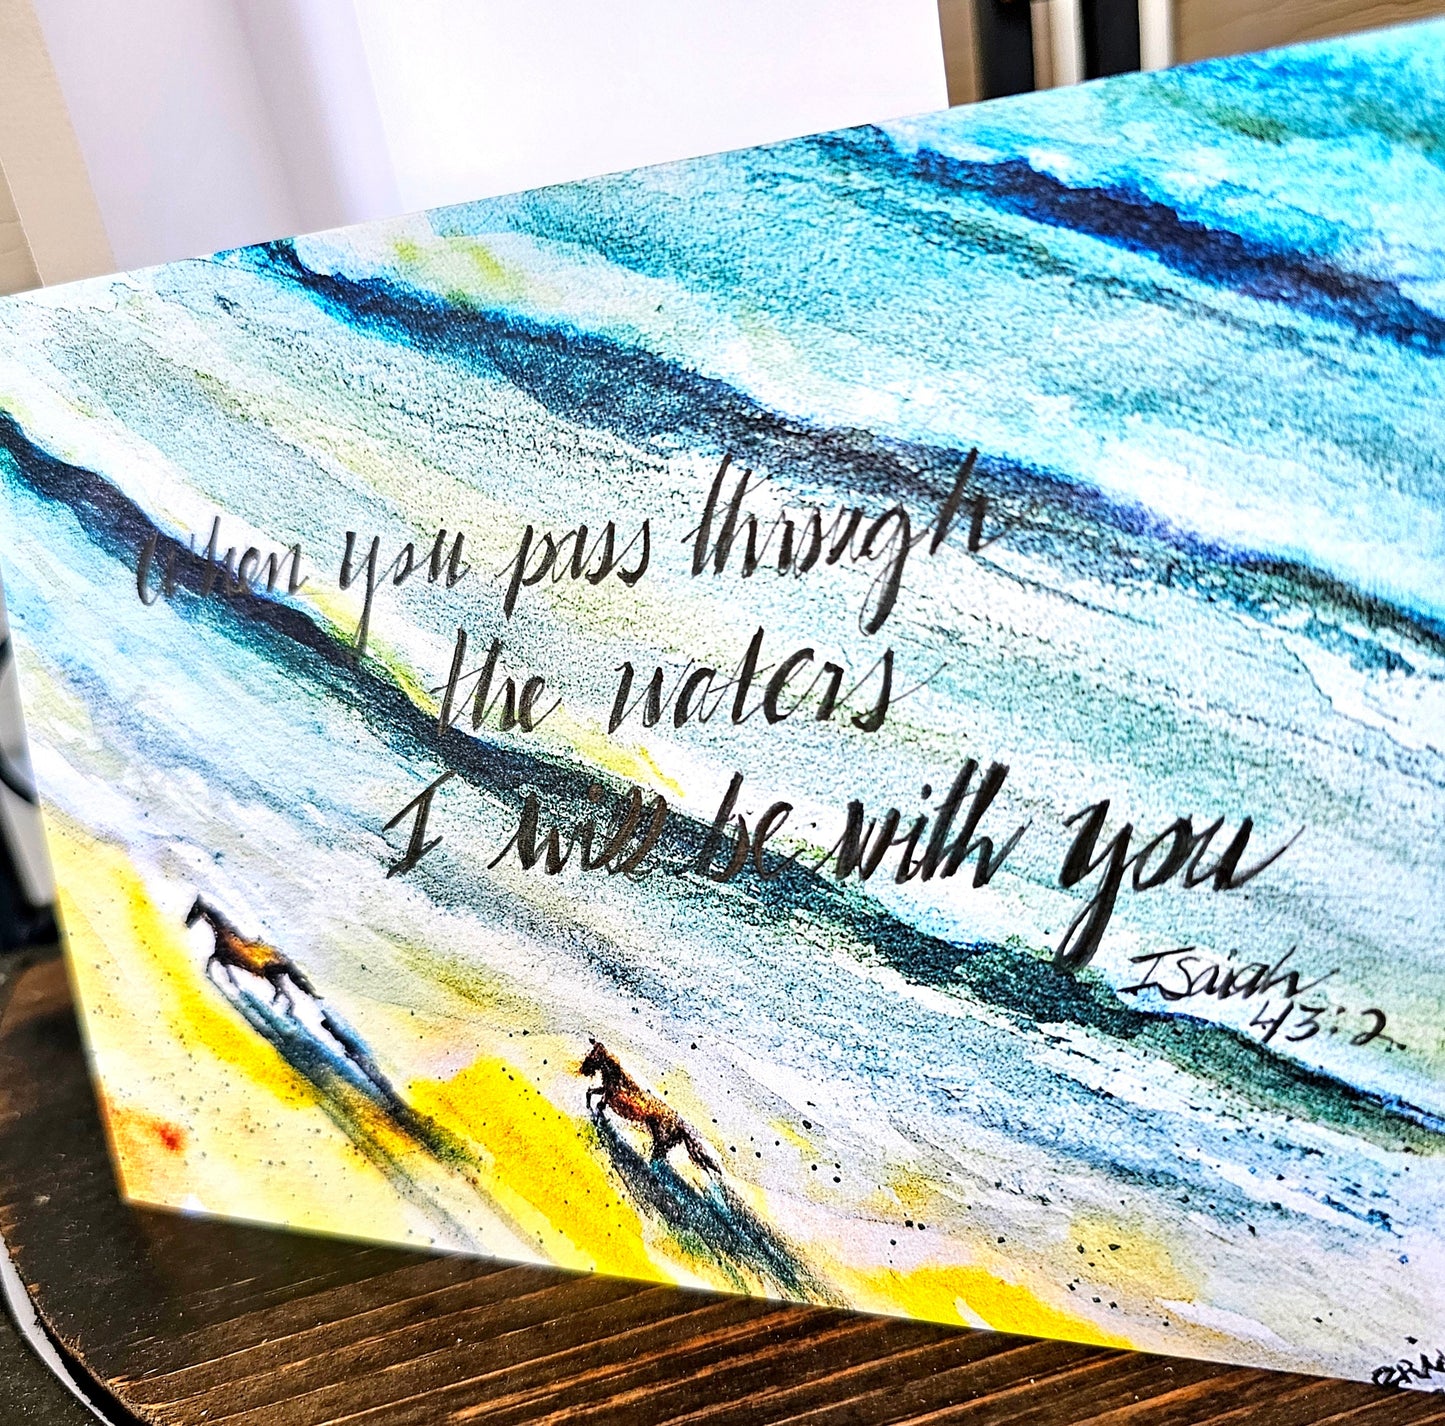 when you pass through
the waters
I will be with you
Isaiah
43:2